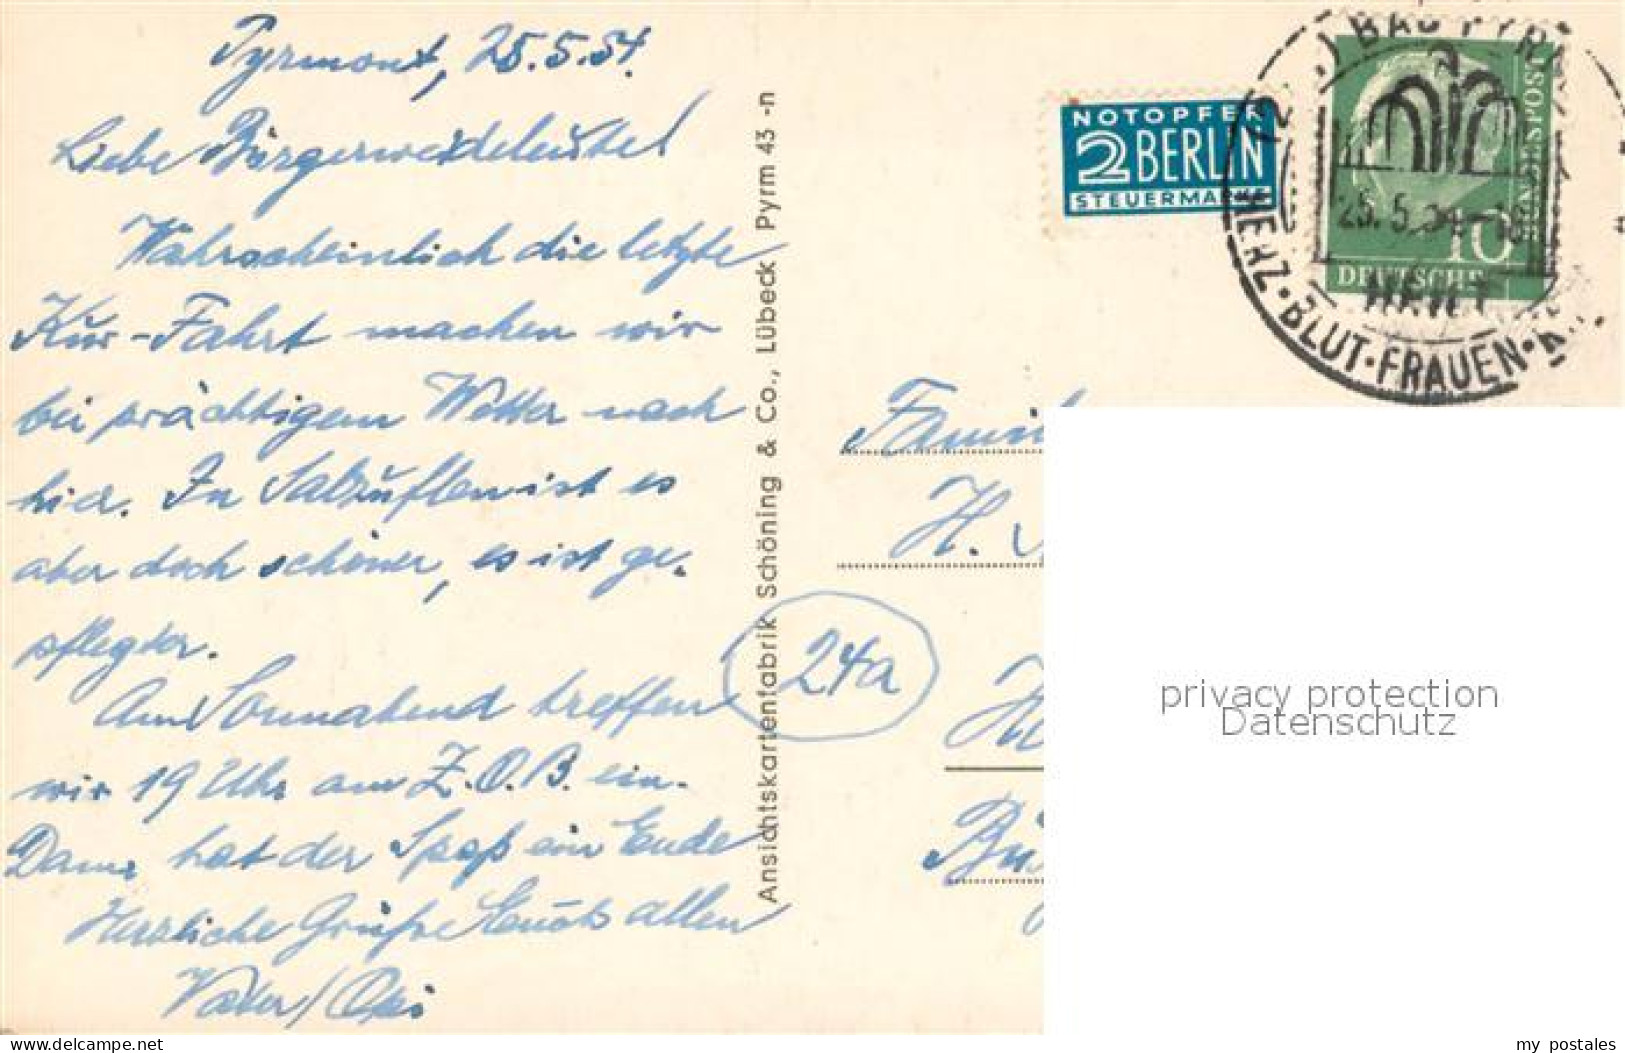 Pyrmont, 25.5.54.
Liebe Bürgerweideleute!
Wahrscheinlich die letzte
Kur-Fahrt machen wir
bei prächtigem Wetter nach
hier. In Salzuflen ist es
aber doch schöner, es ist ge-
pflegter.
Am Sonnabend treffen
wir 19 Uhr am Z.O.B. ein.
Dann hat der Spaß ein Ende
Herzliche Grüße Euch allen
Vater/Opi
Ansichtskartenfabrik Schöning & Co., Lübeck Pyrm 43 -n
NOTOPFER
2 BERLIN
STEUERMARKE
BAD PYRM
25.5.54-18
HERZ·BLUT·FRAUEN·
10
DEUTSCHE
BUNDESPOST
H.
24a
privacy protection
Datenschutz
www.delcampe.net
my_postales